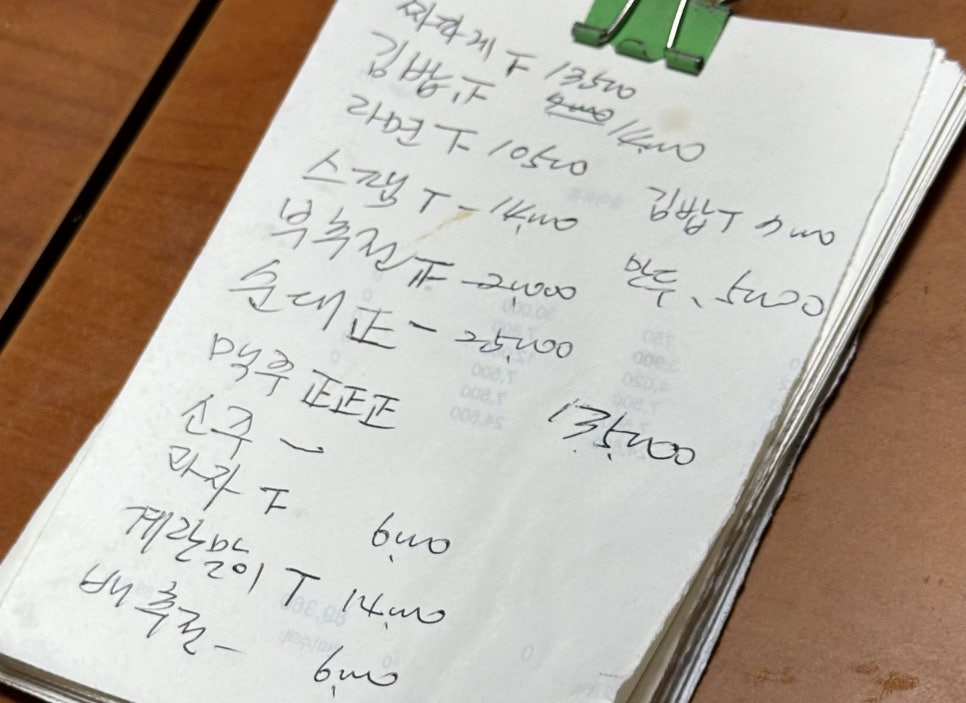 짜파게 下 13500
김밥 下 14,000
라면 下 10500
스팸 T - 14,000 김밥 T 7,000
부추전 正 - 만두 5,000
순대 正 - 25,000
맥주 正正正 135,000
소주 一
과자 下 6,000
계란말이 T 14,000
배추전 - 6,000